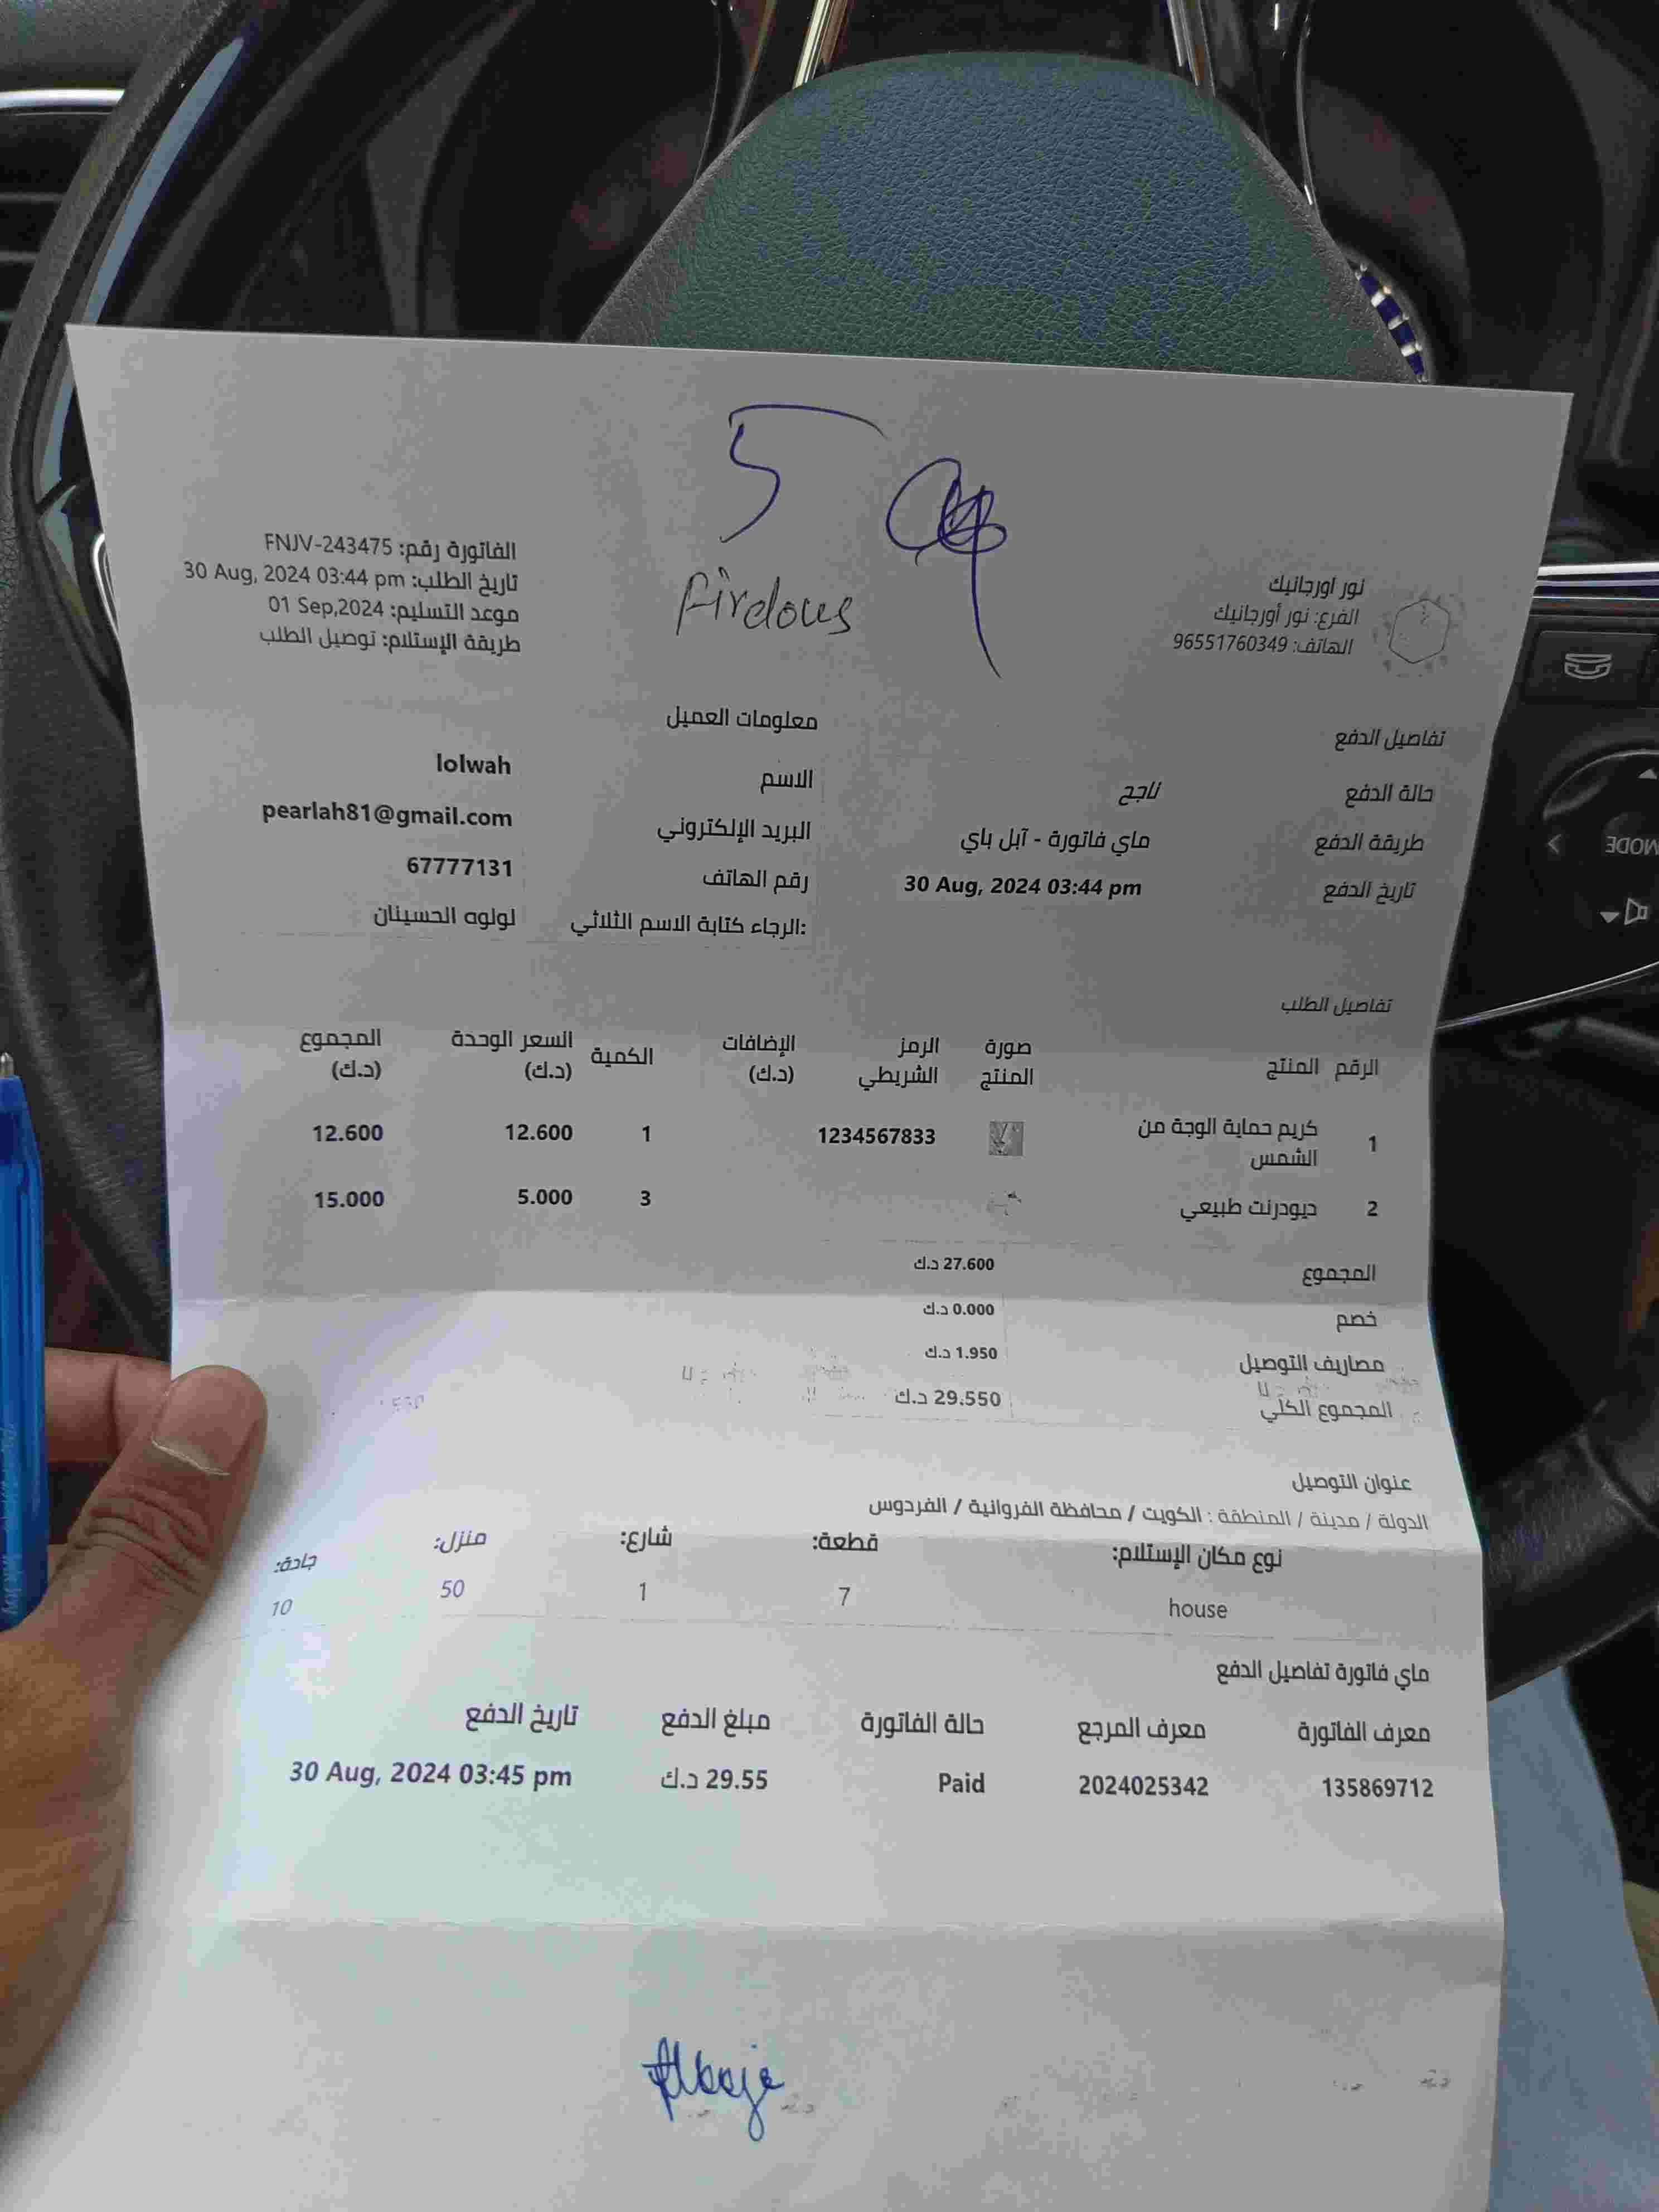 5
firdous
نور اورجانيك
الفرع: نور أورجانيك
الهاتف: 96551760349
الفاتورة رقم: FNJV-243475
تاريخ الطلب: 30 Aug, 2024 03:44 pm
موعد التسليم: 01 Sep,2024
طريقة الإستلام: توصيل الطلب
تفاصيل الدفع
حالة الدفع ناجح
طريقة الدفع ماي فاتورة - آبل باي
تاريخ الدفع 30 Aug, 2024 03:44 pm
معلومات العميل
الاسم lolwah
البريد الإلكتروني pearlah81@gmail.com
رقم الهاتف 67777131
الرجاء كتابة الاسم الثلاثي: لولوه الحسينان
تفاصيل الطلب
الرقم المنتج صورة المنتج الرمز الشريطي الإضافات (د.ك) الكمية السعر الوحدة (د.ك) المجموع (د.ك)
1 كريم حماية الوجة من الشمس 1234567833 1 12.600 12.600
2 ديودرنت طبيعي 3 5.000 15.000
المجموع 27.600 د.ك
خصم 0.000 د.ك
مصاريف التوصيل 1.950 د.ك
المجموع الكلي 29.550 د.ك
عنوان التوصيل
الدولة / مدينة / المنطقة : الكويت / محافظة الفروانية / الفردوس
نوع مكان الإستلام: قطعة: شارع: منزل: جادة:
house 7 1 50 10
ماي فاتورة تفاصيل الدفع
معرف الفاتورة معرف المرجع حالة الفاتورة مبلغ الدفع تاريخ الدفع
135869712 2024025342 Paid 29.55 د.ك 30 Aug, 2024 03:45 pm
MODE